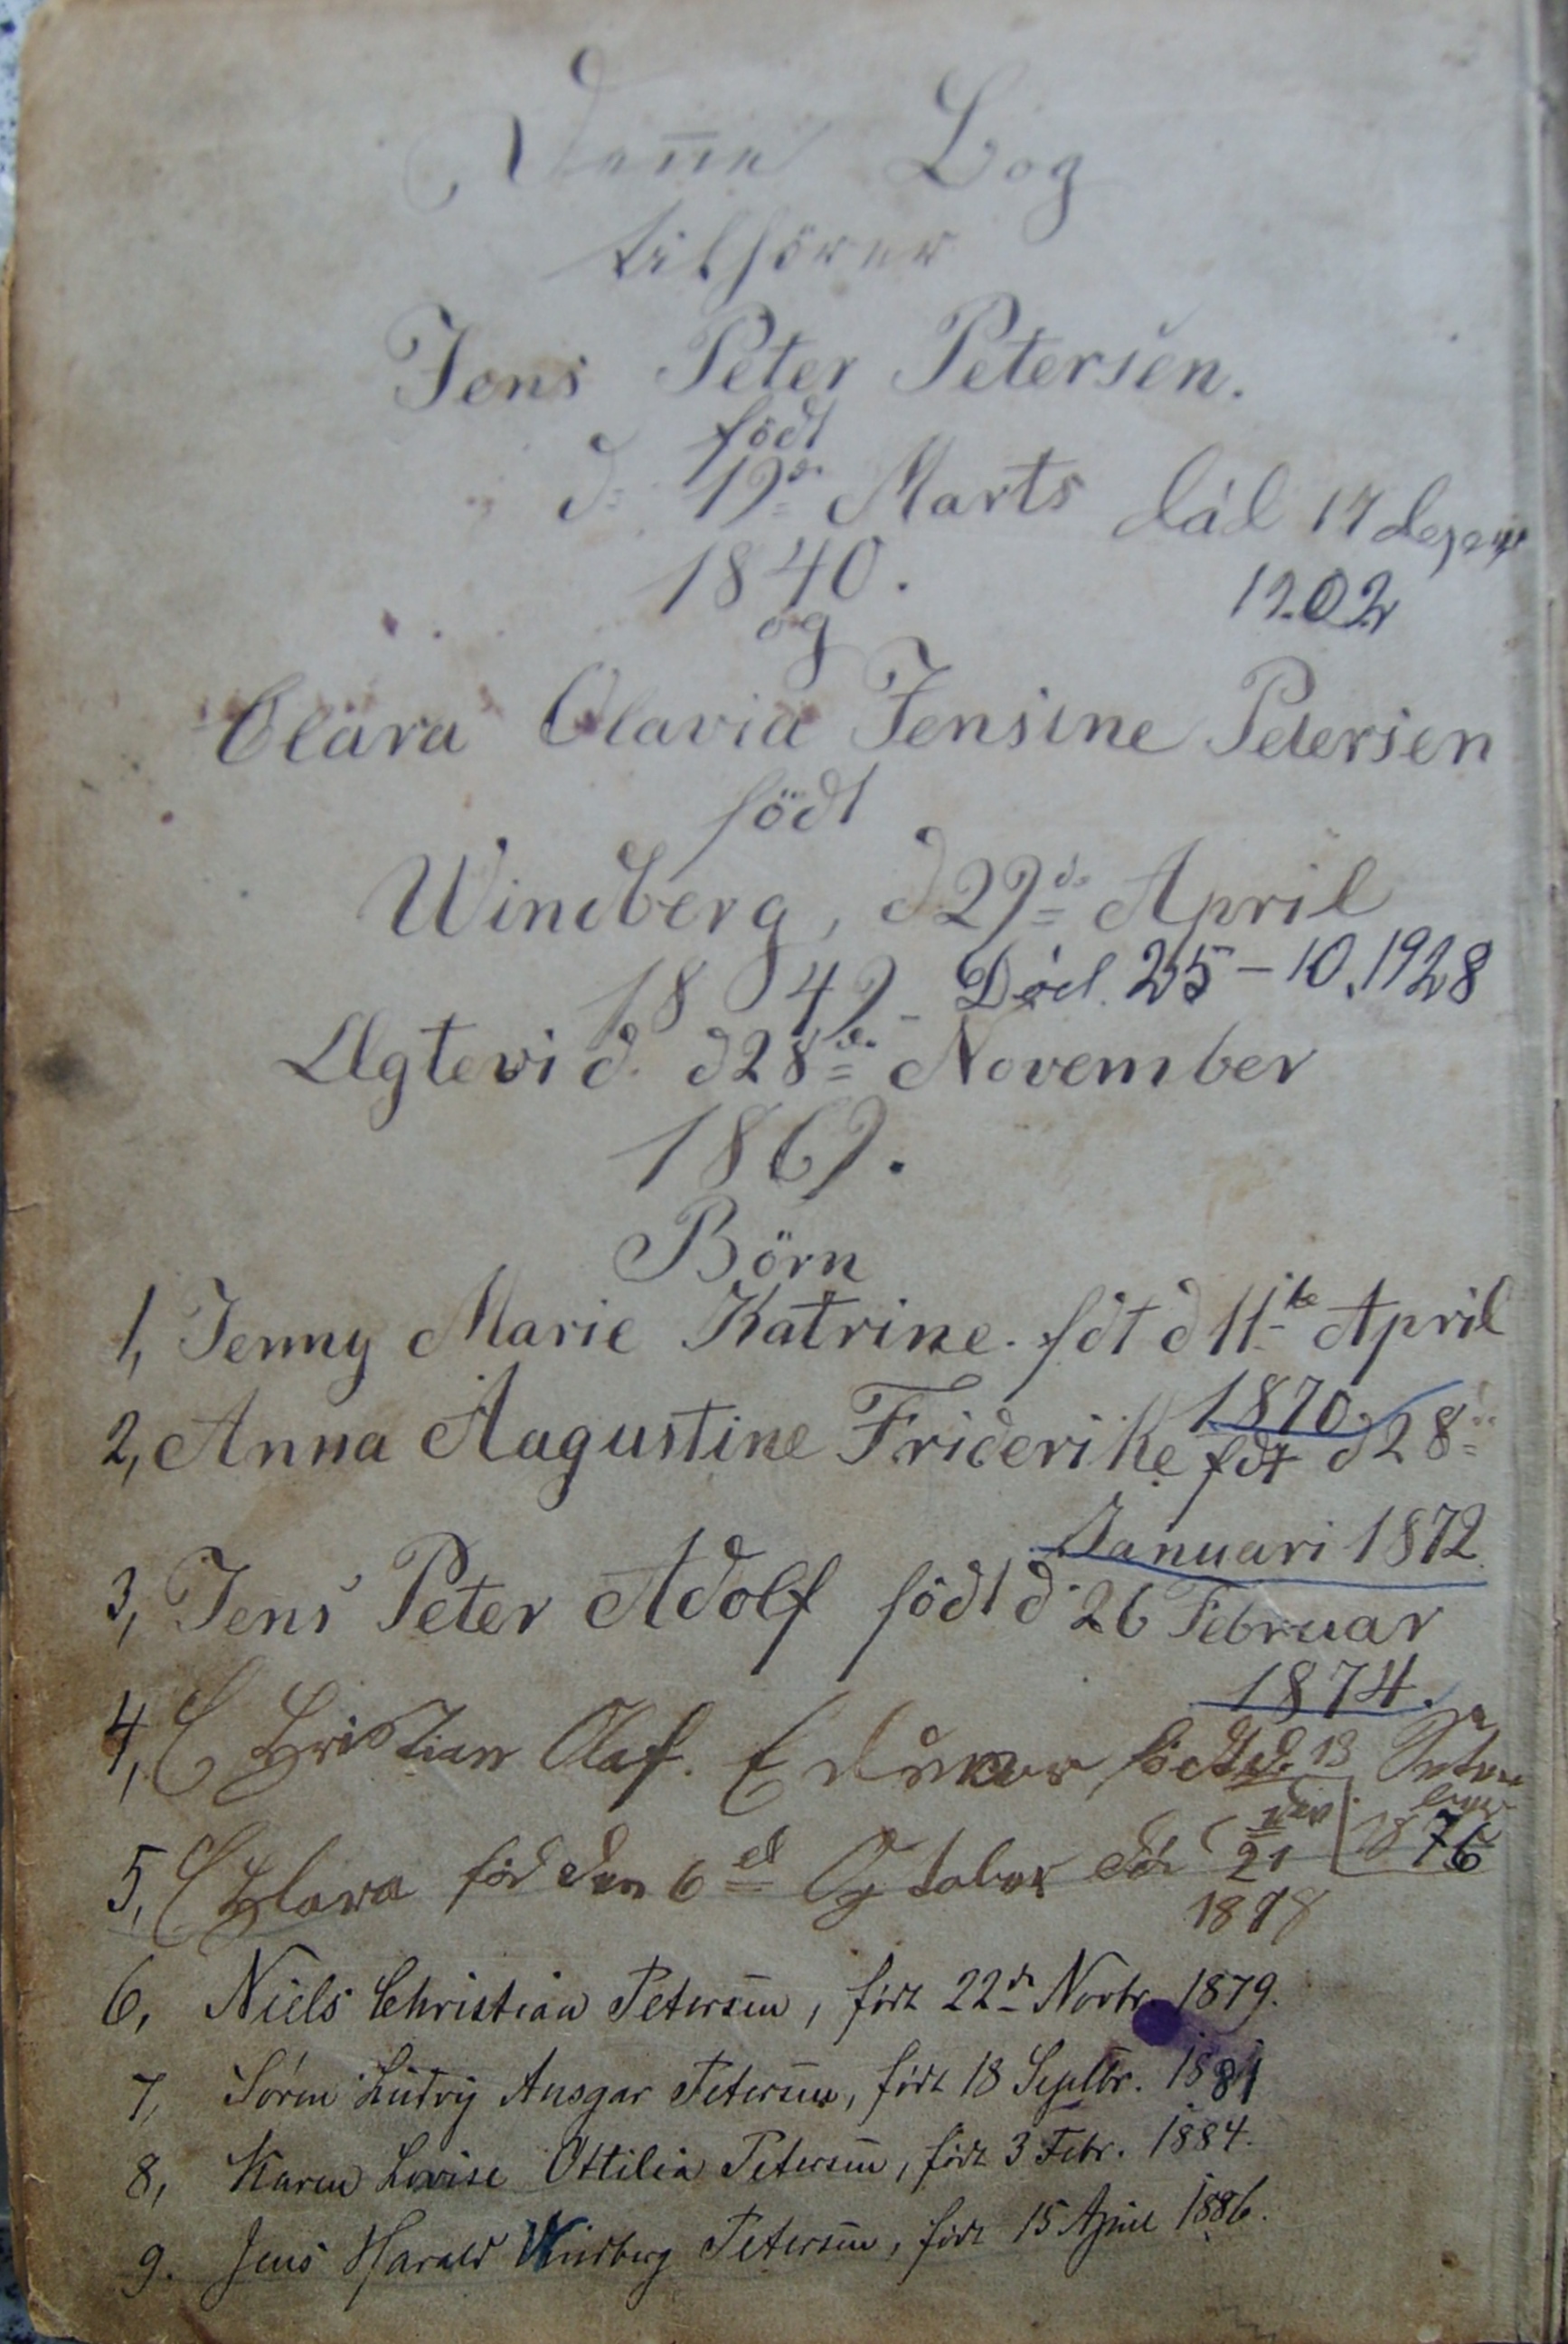 Denne Bog
tilhörer
Jens Peter Petersen.
födt
d. 19de Marts död 17 dezemr
1840. 1902
og
Clara Olavia Jensine Petersen
födt
Windberg, d29de April
1849 - Död. 25-10.1928
Ægteviд d28de November
1869.
Börn
1, Jenny Marie Katrine. fdt d 11te April
1870.
2, Anna Aagustine Friderike fdt d28de
Januari 1872.
3, Jens Peter Adolf födt d. 26 Februar
1874.
4, Christian Olaf. födt d. 13
1876
5, Clara föd den 6et Ogtober
21
1878
6, Niels Christian Petersen, födt 22de Novbr. 1879.
7, Sören Ludvig Ansgar Petersen, födt 18 Septbr. 1881
8, Karen Lovise Ottilia Petersen, födt 3 Febr. 1884.
9. Jens Harald Windberg Petersen, födt 15 April 1886.